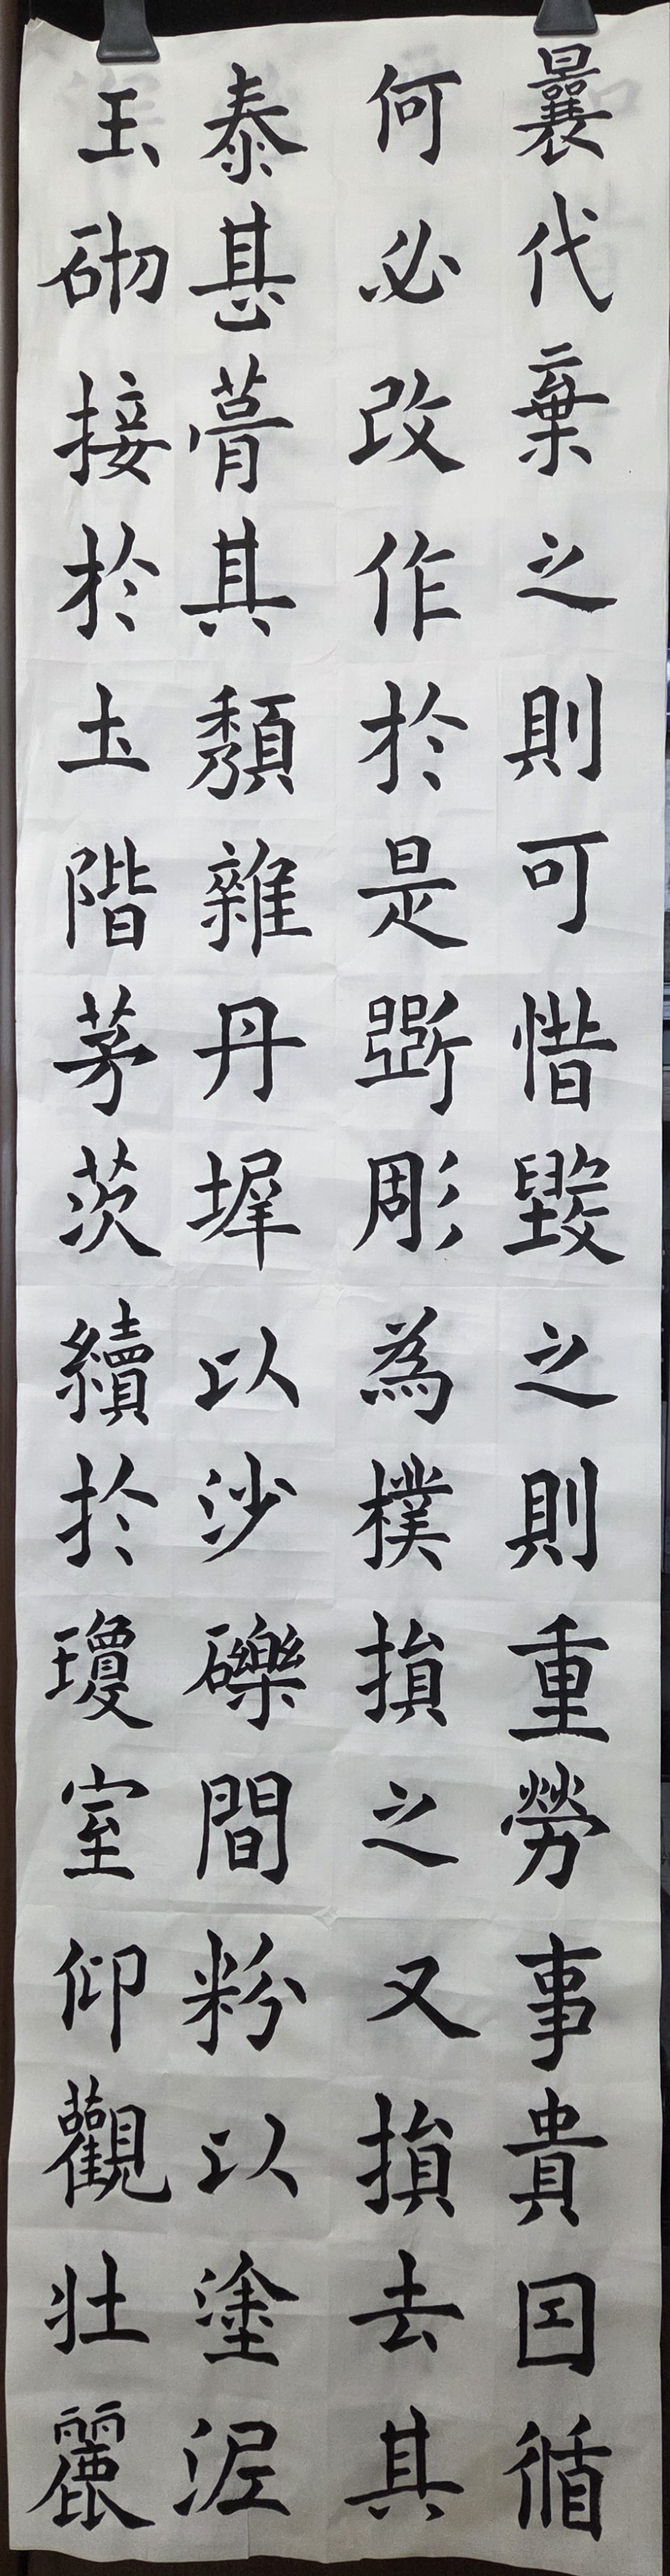 曩代棄之則可惜毀之則重勞事貴因循
何必改作於是斲彫為樸損之又損去其
泰甚葺其頹雜丹墀以沙礫間粉以塗泥
玉砌接於土階茅茨續於瓊室仰觀壯麗